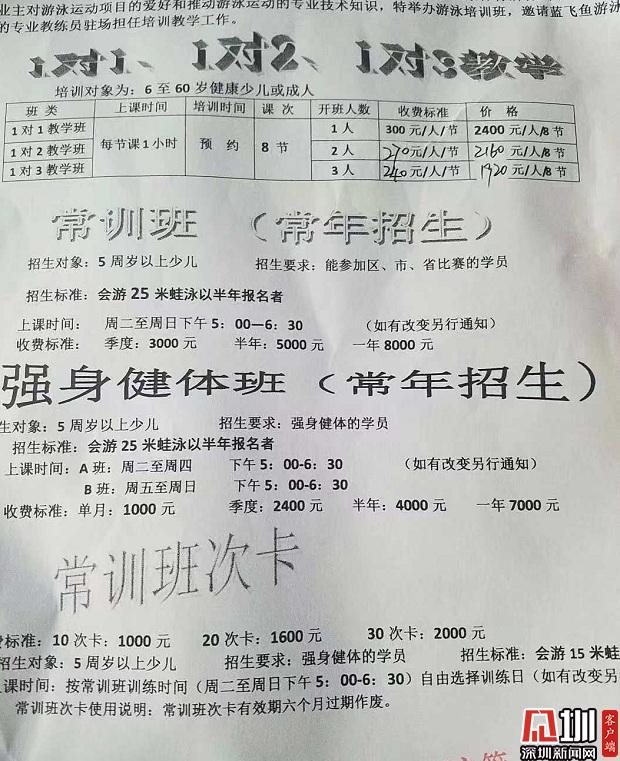 业主对游泳运动项目的爱好和推动游泳运动的专业技术知识，特举办游泳培训班，邀请蓝飞鱼游泳
的专业教练员驻场担任培训教学工作。
1对1、1对2、1对3教学
培训对象为：6 至 60 岁健康少儿或成人
班 类 上课时间 培训时间 课 次 开班人数 收费标准 价 格
1 对 1 教学班 每节课 1 小时 预 约 8 节 1 人 300 元/人/节 2400 元/人/8 节
1 对 2 教学班 2 人 270 元/人/节 2160 元/人/8 节
1 对 3 教学班 3 人 240 元/人/节 1920 元/人/8 节
常训班 （常年招生）
招生对象：5 周岁以上少儿 招生要求：能参加区、市、省比赛的学员
招生标准：会游 25 米蛙泳以半年报名者
上课时间： 周二至周日下午 5：00—6：30 （如有改变另行通知）
收费标准： 季度：3000 元 半年：5000 元 一年 8000 元
强身健体班（常年招生）
生对象：5 周岁以上少儿 招生要求：强身健体的学员
招生标准：会游 25 米蛙泳以半年报名者
上课时间：A 班：周二至周四 下午 5：00-6：30 （如有改变另行通知）
B 班：周五至周日 下午 5：00-6：30
收费标准：单月：1000 元 季度：2400 元 半年：4000 元 一年 7000 元
常训班次卡
费标准：10 次卡：1000 元 20 次卡：1600 元 30 次卡：2000 元
招生对象：5 周岁以上少儿 招生要求：强身健体的学员 招生标准：会游 15 米蛙
上课时间：按常训班训练时间（周二至周日下午 5：00-6：30）自由选择训练日（如有改变另
常训班次卡使用说明：常训班次卡有效期六个月过期作废。
深圳新闻网
客户端